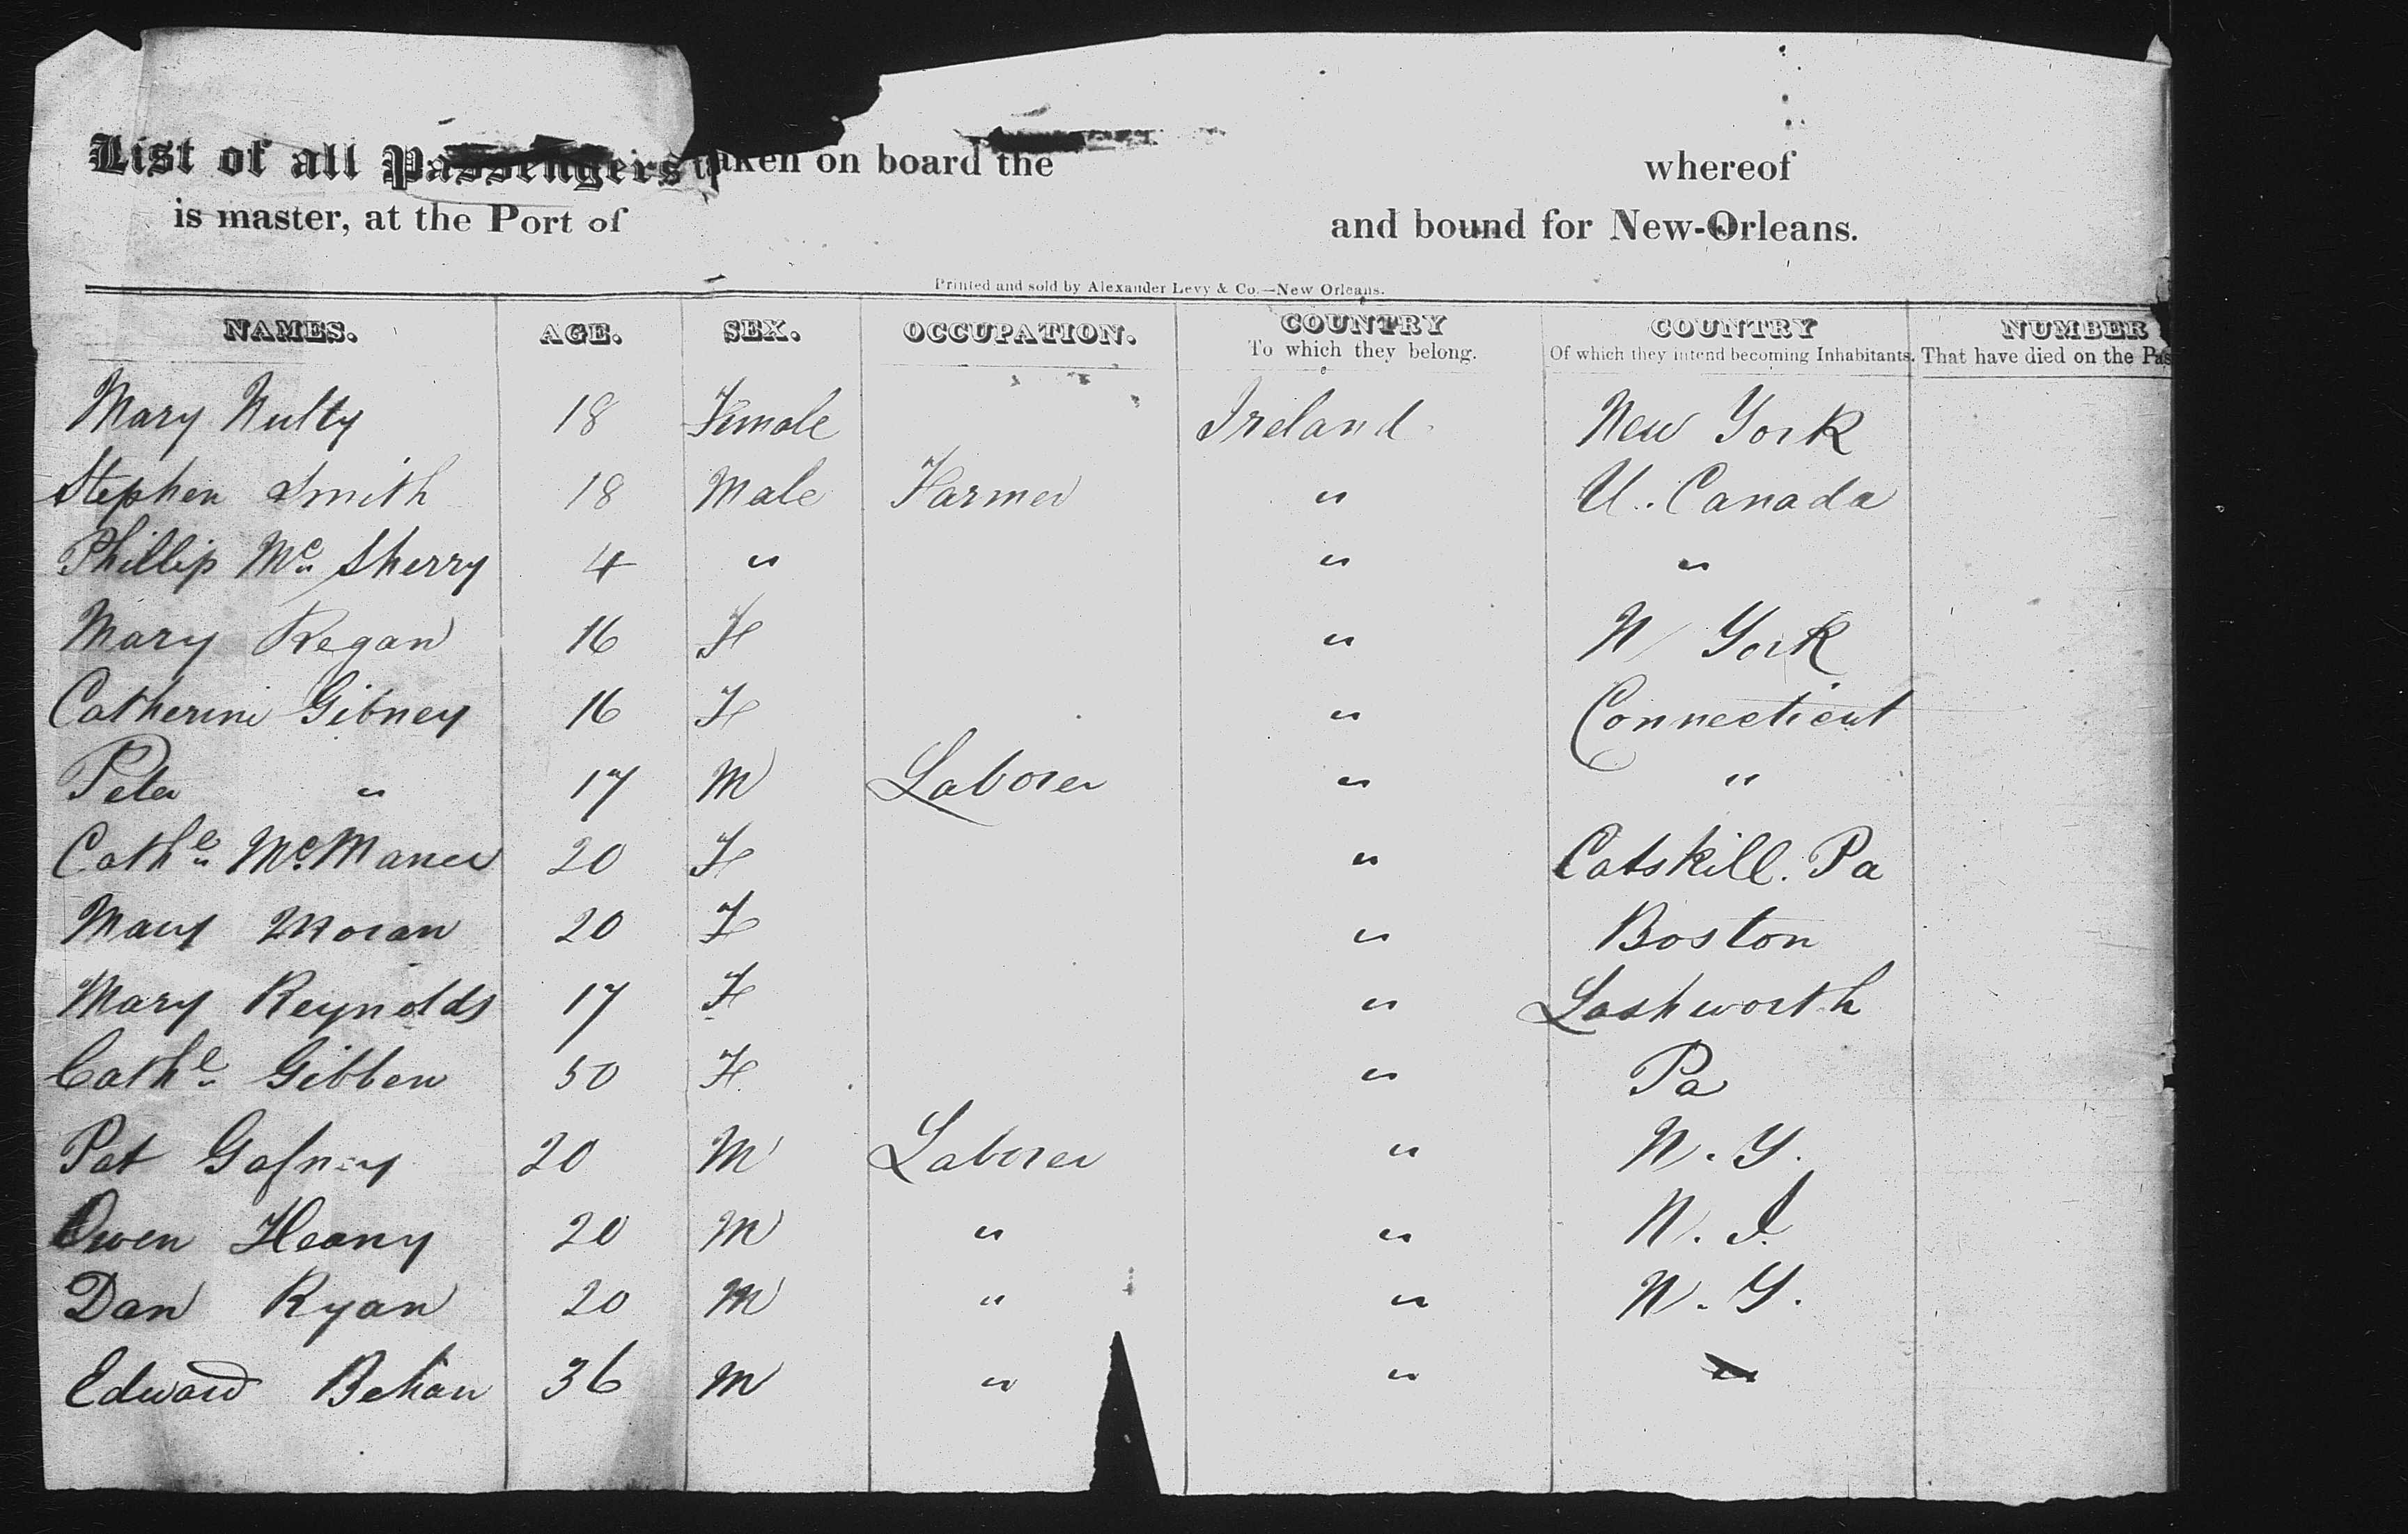 List of all Passengers taken on board the whereof
is master, at the Port of and bound for New-Orleans.
Printed and sold by Alexander Levy & Co.—New Orleans.
NAMES. AGE. SEX. OCCUPATION. COUNTRY COUNTRY NUMBER
To which they belong. Of which they intend becoming Inhabitants. That have died on the Pas
Mary Nulty 18 Female Ireland New York
Stephen Smith 18 Male Farmer " U. Canada
Phillip Mc Sherry 4 " " "
Mary Regan 16 F " N York
Catherine Gibney 16 F " Connecticut
Peter " 17 M Laborer " "
Cathe McManus 20 F " Catskill. Pa
Mary Moran 20 F " Boston
Mary Reynolds 17 F " Lashworth
Cathe Gibben 50 F " Pa
Pat Gafney 20 M Laborer " N. Y.
Owen Heany 20 M " " N. J.
Dan Ryan 20 M " " N. Y.
Edward Behan 36 M " " "